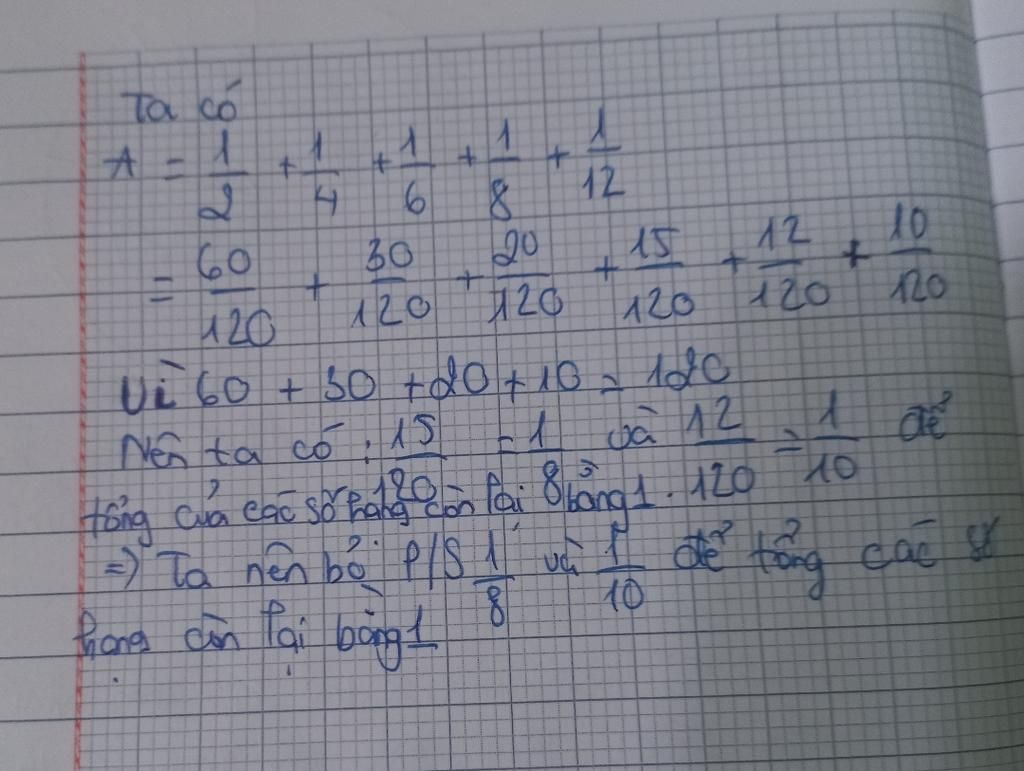 Ta có
A = 1/2 + 1/4 + 1/6 + 1/8 + 1/12
= 60/120 + 30/120 + 20/120 + 15/120 + 12/120 + 10/120
Vì 60 + 30 + 20 + 10 = 120
Nên ta có : 15/120 = 1/8 và 12/120 = 1/10 để
tổng của các số hạng còn lại bằng 1.
=> Ta nên bỏ P/S 1/8 và 1/10 để tổng các
hạng còn lại bằng 1